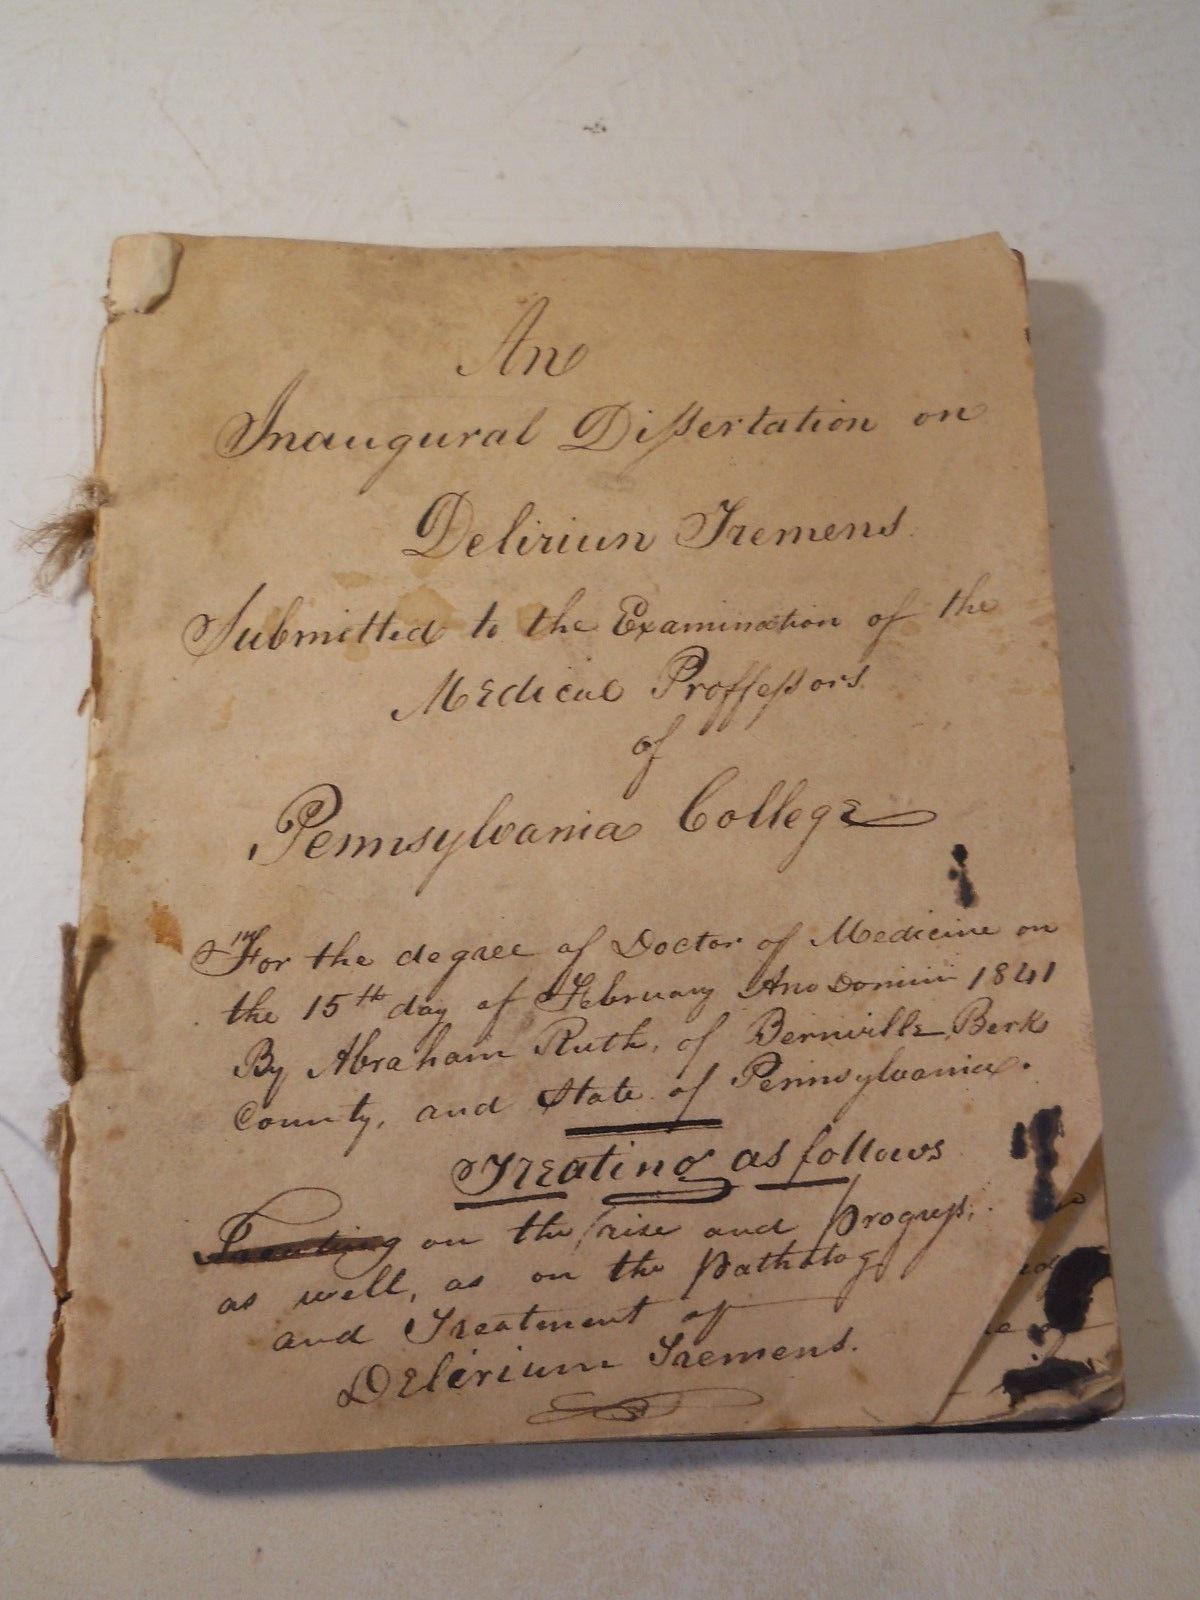 An
Inaugural Dissertation on
Delirium Tremens.
Submitted to the Examination of the
Medical Proffessors
of
Pennsylvania College
For the degree of Doctor of Medicine on
the 15th day of February Ano Domini 1841
By Abraham Ruth, of Bernville Berks
County, and State of Pennsylvania.
Treating as follows
on the rise and progress,
as well, as on the Patholog
and Treatment of
Delirium Tremens.